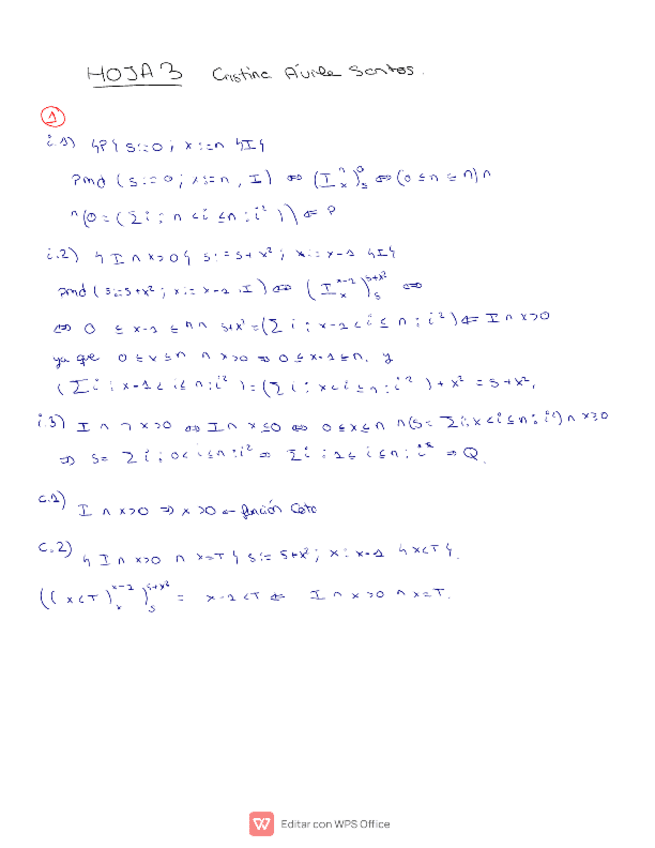 HOJA 3 Cristina Ávila Santos.
1
i.1) {P} s:=0; x:=n {I}
pmd (s:=0; x:=n, I) ⇔ (I_x^n)_s^0 ⇔ (0 ≤ n ≤ n) ∧
∧ (0 = (Σi : n < i ≤ n : i²)) ⇐ P
i.2) {I ∧ x>0} s:=s+x²; x:=x-1 {I}
pmd (s:=s+x²; x:=x-1, I) ⇔ (I_x^{x-1})_s^{s+x²} ⇔
⇔ 0 ≤ x-1 ≤ n ∧ s+x² = (Σi : x-1 < i ≤ n : i²) ⇐ I ∧ x>0
ya que 0 ≤ x ≤ n ∧ x>0 ⇒ 0 ≤ x-1 ≤ n, y
(Σi : x-1 < i ≤ n : i²) = (Σi : x < i ≤ n : i²) + x² = s+x².
i.3) I ∧ ¬ x>0 ⇔ I ∧ x ≤ 0 ⇔ 0 ≤ x ≤ n ∧ (s = Σi : x < i ≤ n : i²) ∧ x ≤ 0
⇒ s = Σi : 0 < i ≤ n : i² ⇒ Σi : 1 ≤ i ≤ n : i² ⇒ Q.
c.1) I ∧ x>0 ⇒ x>0 ← función Cota
c.2) {I ∧ x>0 ∧ x=T} s:=s+x²; x:=x-1 {x<T}.
((x<T)_x^{x-1})_s^{s+x²} = x-1<T ⇐ I ∧ x>0 ∧ x=T.
Editar con WPS Office